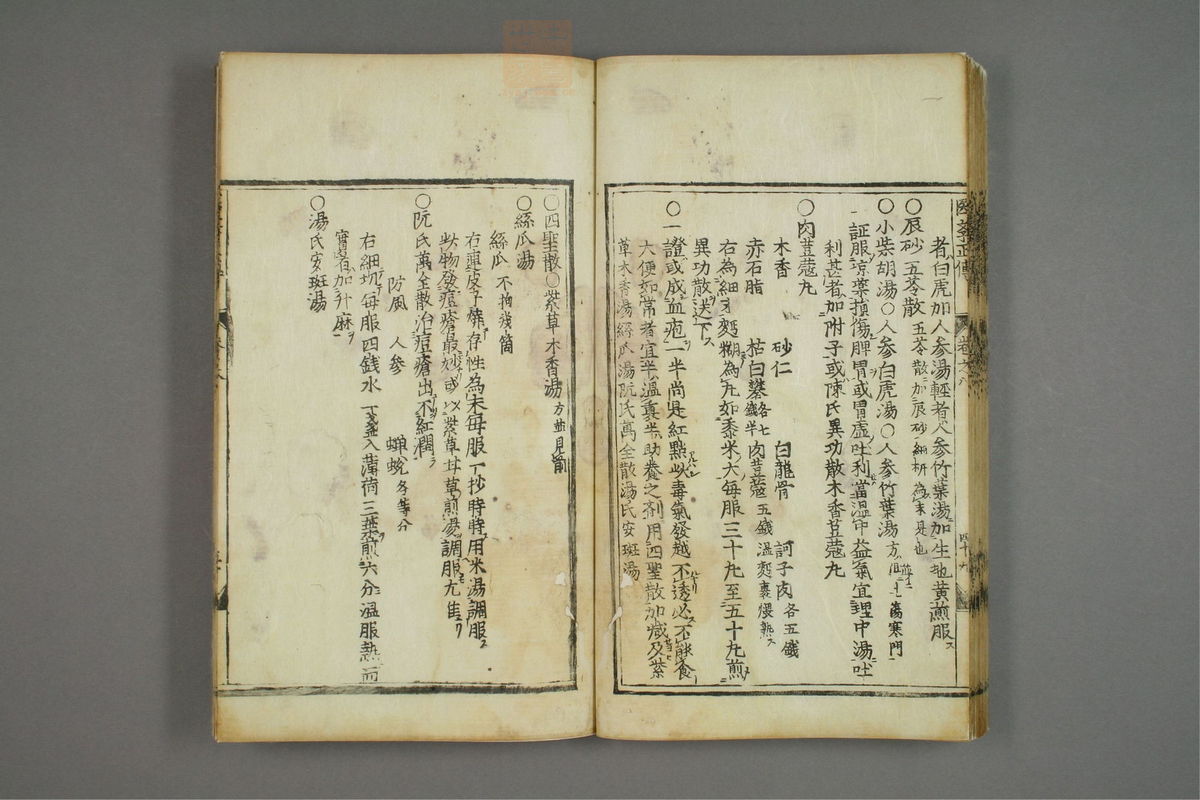 者白虎加人参湯輕者人参竹葉湯加生地黄煎服
〇辰砂五苓散 五苓散加辰砂細研為末是也
〇小柴胡湯〇人参白虎湯〇人参竹葉湯 方並見傷寒門
一証服凉藥損傷脾胃或胃虚吐利當温中益氣宜理中湯吐
利甚者加附子或陳氏異功散木香荳蔻丸
〇肉荳蔻丸
木香 砂仁 白龍骨 訶子肉 各五錢
赤石脂 枯白礬 各七錢半 肉荳蔻 五錢 温麪裹煨熟
右為細末麪糊為丸如黍米大毎服三十丸至五十丸煎
異功散送下
〇一證或成血疱一半尚是紅點此毒氣發越不透必不能食
大便如常者宜半温裏半助養之剤用四聖散加減及紫
草木香湯絲瓜湯阮氏萬全散湯氏安斑湯
〇四聖散〇紫草木香湯 方並見前
〇絲瓜湯
絲瓜 不拘幾箇
右連皮子燒存性為末毎服一抄時時用米湯調服
此物發痘瘡最妙或以紫草甘草煎湯調服尤佳
〇阮氏萬全散治痘瘡出不紅潤
防風 人参 蝉蛻 各等分
右細切毎服四錢水一盞入薄荷三葉煎六分温服熱而
實者加升麻
〇湯氏安斑湯